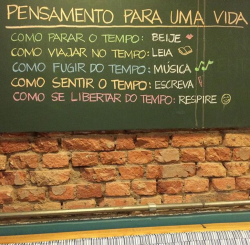 PENSAMENTO PARA UMA VIDA
COMO PARAR O TEMPO: BEIJE
COMO VIAJAR NO TEMPO: LEIA
COMO FUGIR DO TEMPO: MÚSICA
COMO SENTIR O TEMPO: ESCREVA
COMO SE LIBERTAR DO TEMPO: RESPIRE